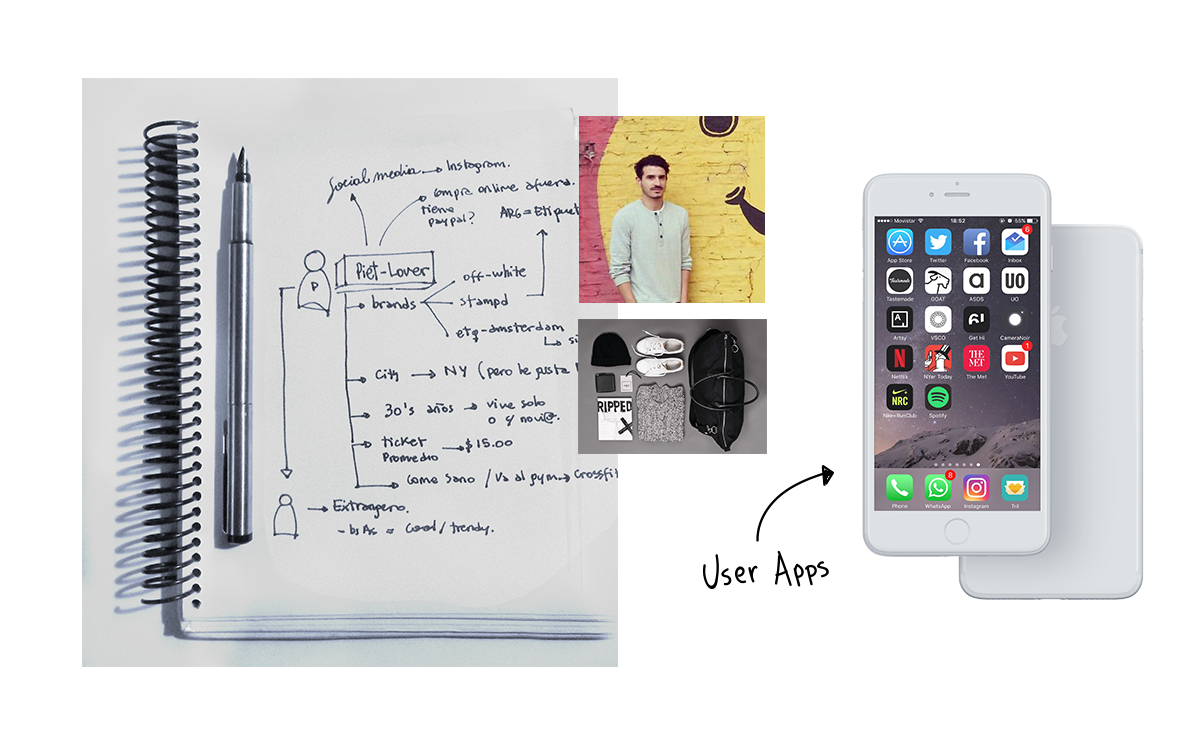 Social media → Instagram.
compra online afuera.
tiene
paypal?
ARG = Etiquet
Piet-Lover
P
brands
off-white
stampd
etq-amsterdam
↳ si
City → NY (pero le gusta
30's años → vive solo
o y novi@.
ticket → $15.00
Promedio
come sano / Va al gym → Crossfit
→ Extranjero.
- bsAs = cool / trendy.
RIPPED
User Apps
Movistar
18:52
55%
6
App Store
Twitter
Facebook
Inbox
Tastemade
a
UO
Tastemade
GOAT
ASOS
UO
A
Artsy
VSCO
Get Hi
CameraNoir
N
THE
MET
1
Netflix
NYer Today
The Met
YouTube
NRC
Nike+RunClub
Spotify
8
Phone
WhatsApp
Instagram
Tril